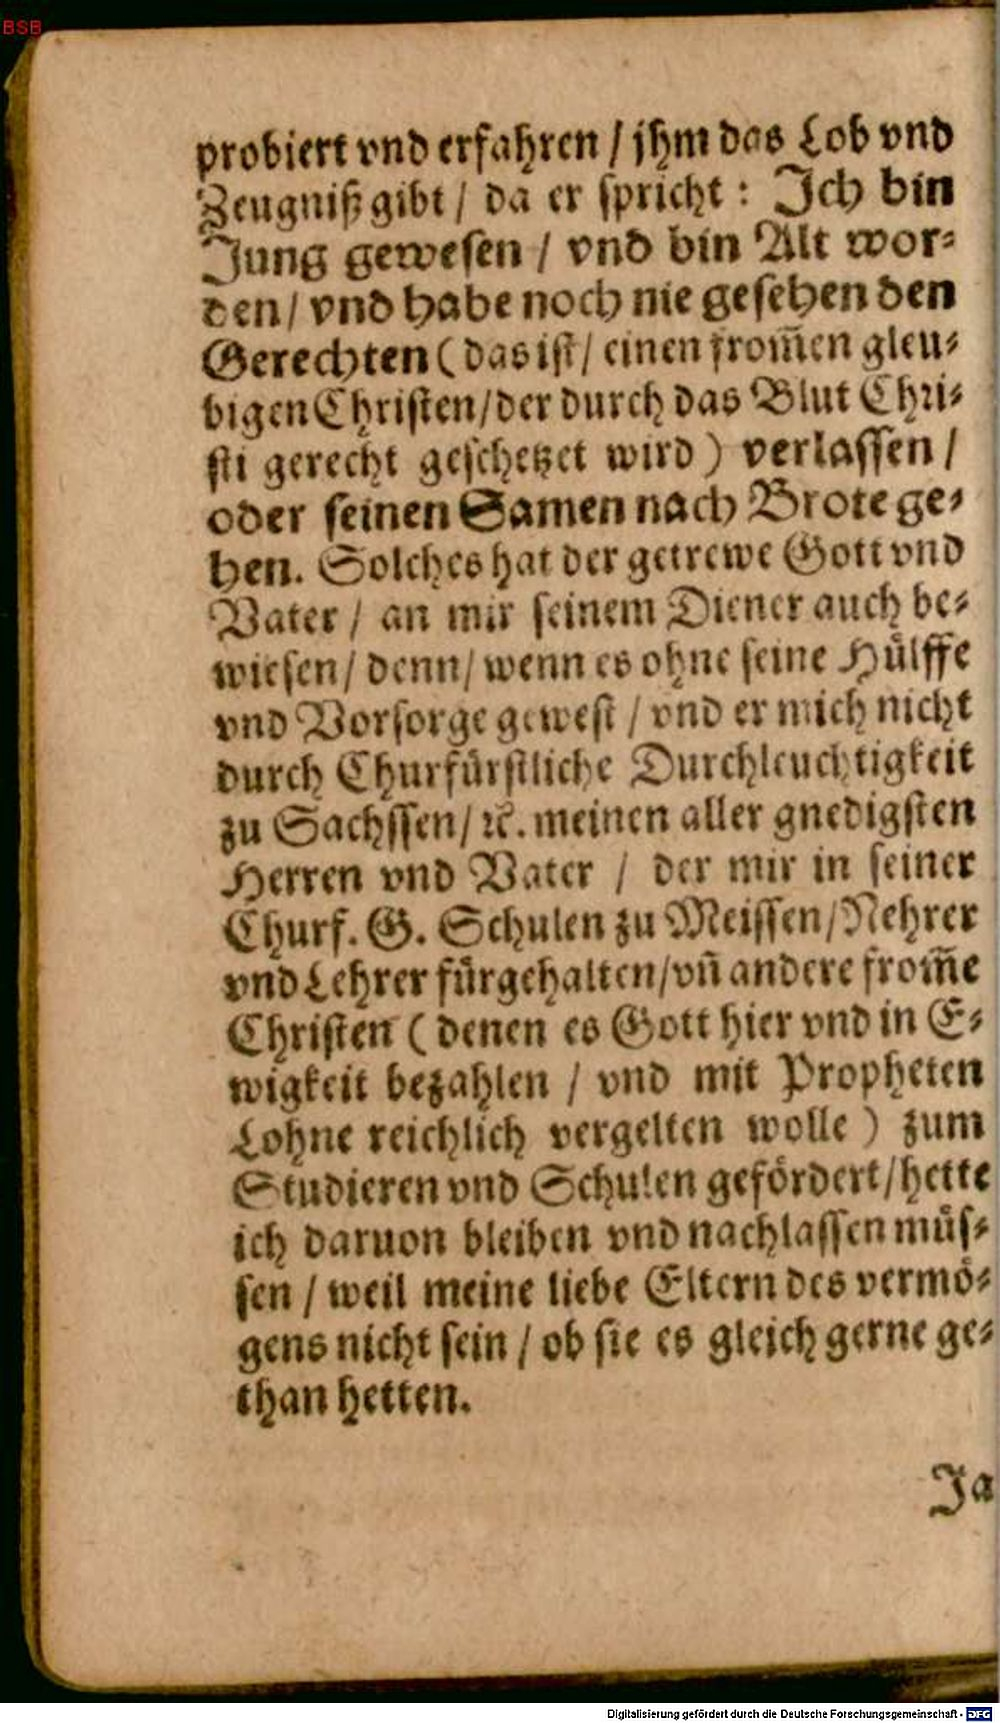 BSB
probiert vnd erfahren / jhm das Lob vnd
Zeugniß gibt / da er spricht: Ich bin
Jung gewesen / vnd bin Alt wor⸗
den / vnd habe noch nie gesehen den
Gerechten (das ist / einen from̃en gleu⸗
bigen Christen / der durch das Blut Chri⸗
sti gerecht geschetzet wird) verlassen /
oder seinen Samen nach Brote ge⸗
hen. Solches hat der getrewe Gott vnd
Vater / an mir seinem Diener auch be⸗
wiesen / denn / wenn es ohne seine Hülffe
vnd Vorsorge gewest / vnd er mich nicht
durch Churfürstliche Durchleuchtigkeit
zu Sachssen / ꝛc. meinen aller gnedigsten
Herren vnd Vater / der mir in seiner
Churf. G. Schulen zu Meissen / Nehrer
vnd Lehrer fürgehalten / vñ andere from̃e
Christen (denen es Gott hier vnd in E⸗
wigkeit bezahlen / vnd mit Propheten
Lohne reichlich vergelten wolle) zum
Studieren vnd Schulen gefördert / hette
ich daruon bleiben vnd nachlassen müs⸗
sen / weil meine liebe Eltern des vermö⸗
gens nicht sein / ob sie es gleich gerne ge⸗
than hetten.
Ja
Digitalisierung gefördert durch die Deutsche Forschungsgemeinschaft - DFG